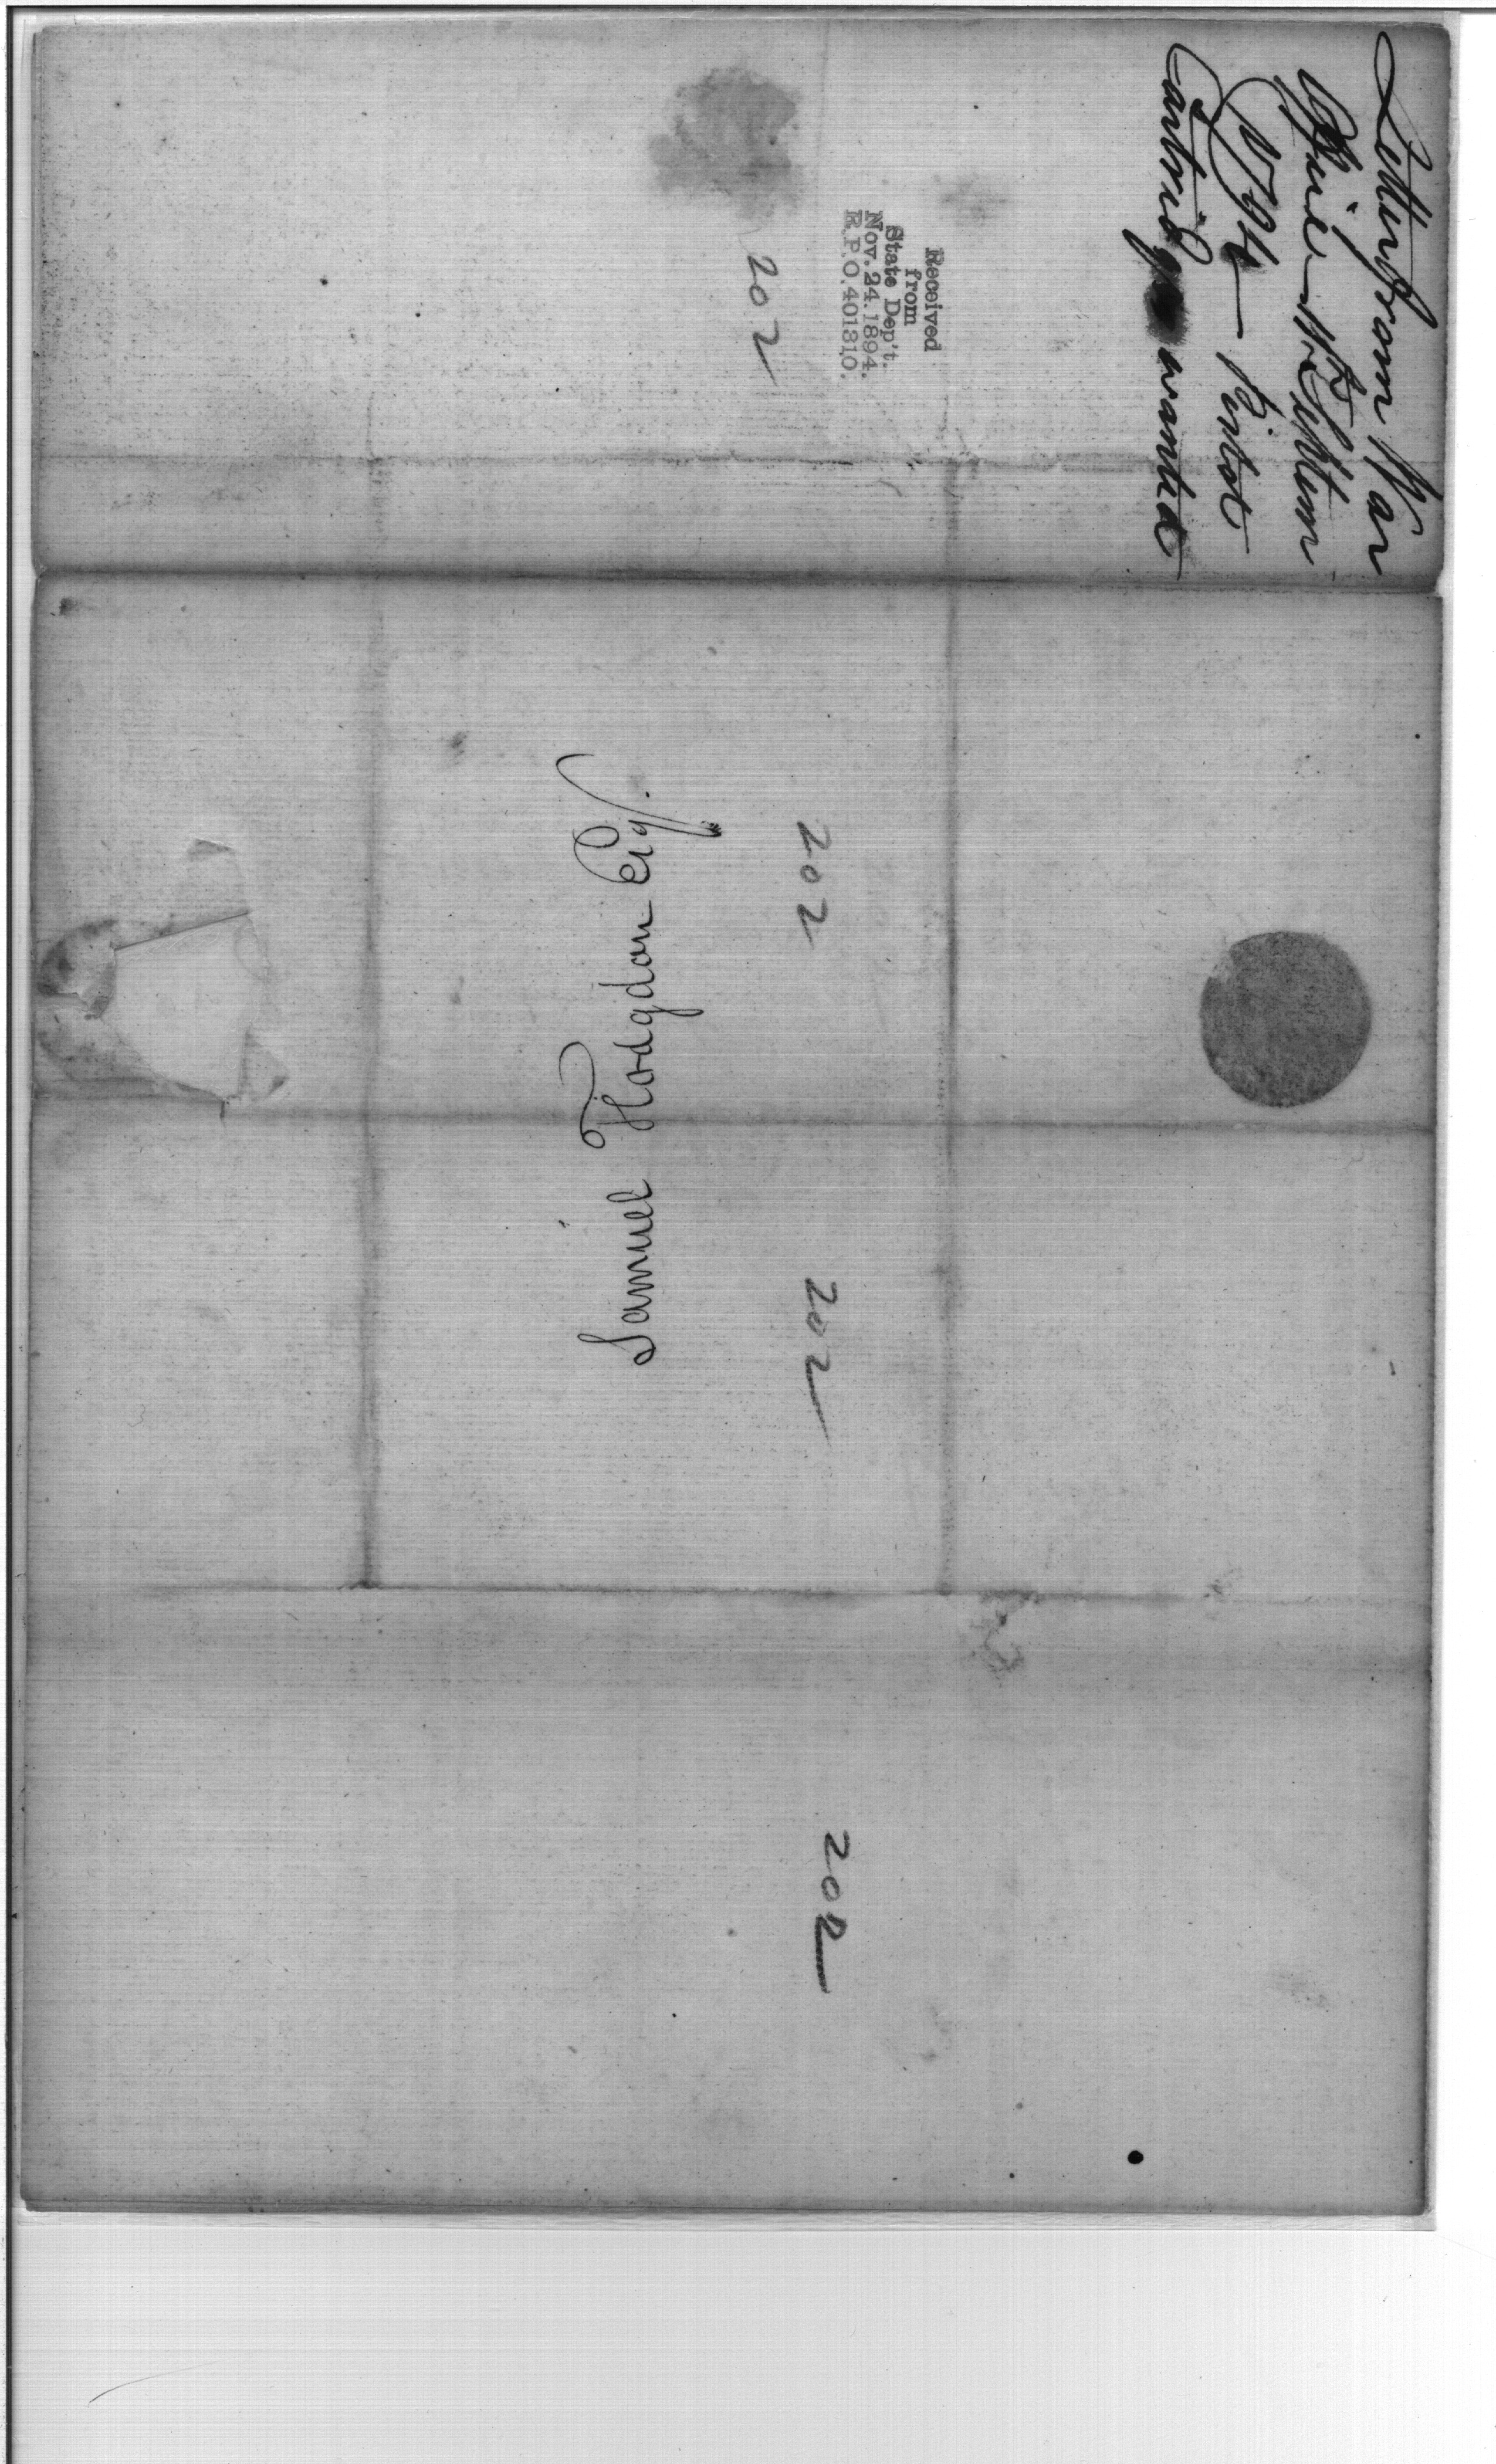 Letter from War
Office 11th Septem
1794 — Pistol
Cartridges wanted
Received
from
State Dep't.
Nov. 24. 1894.
R.P.O. 401310.
202
Samuel Hodgdon Esq.
202
202
202